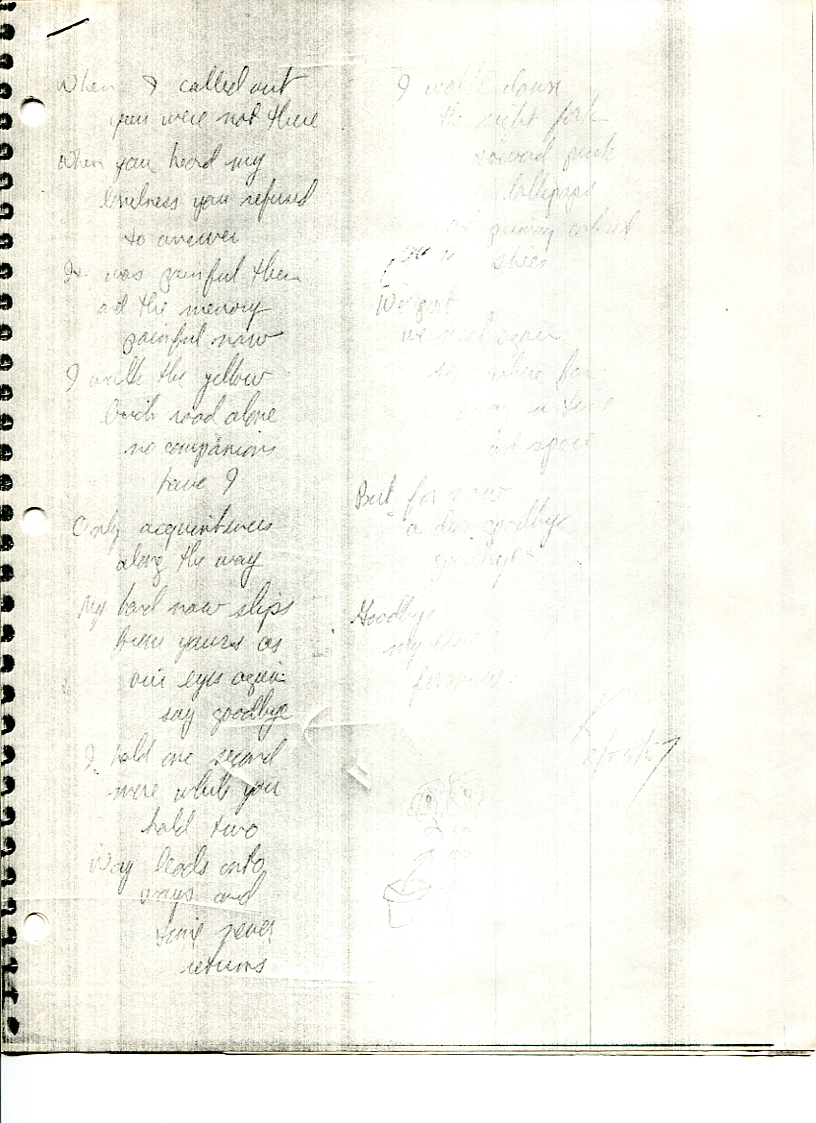 When I called out
you were not there
When you heard my
lonelness you refused
to answer
It was painful then
ad the memory
painful now
I walk the yellow
brick road alone
no companions
have I
Only acquintences
along the way
My hand now slips
from yours as
our eyes again
say goodbye
I hold one second
more while you
hold two
Way leads onto
ways and
time never
returns
I walk down
the right fork
toward pink
lollipops
skies
We part
we meet again
somewhere far
away in time
and space
But for now
a dear goodbye
goodbye
Goodbye
my love
forever